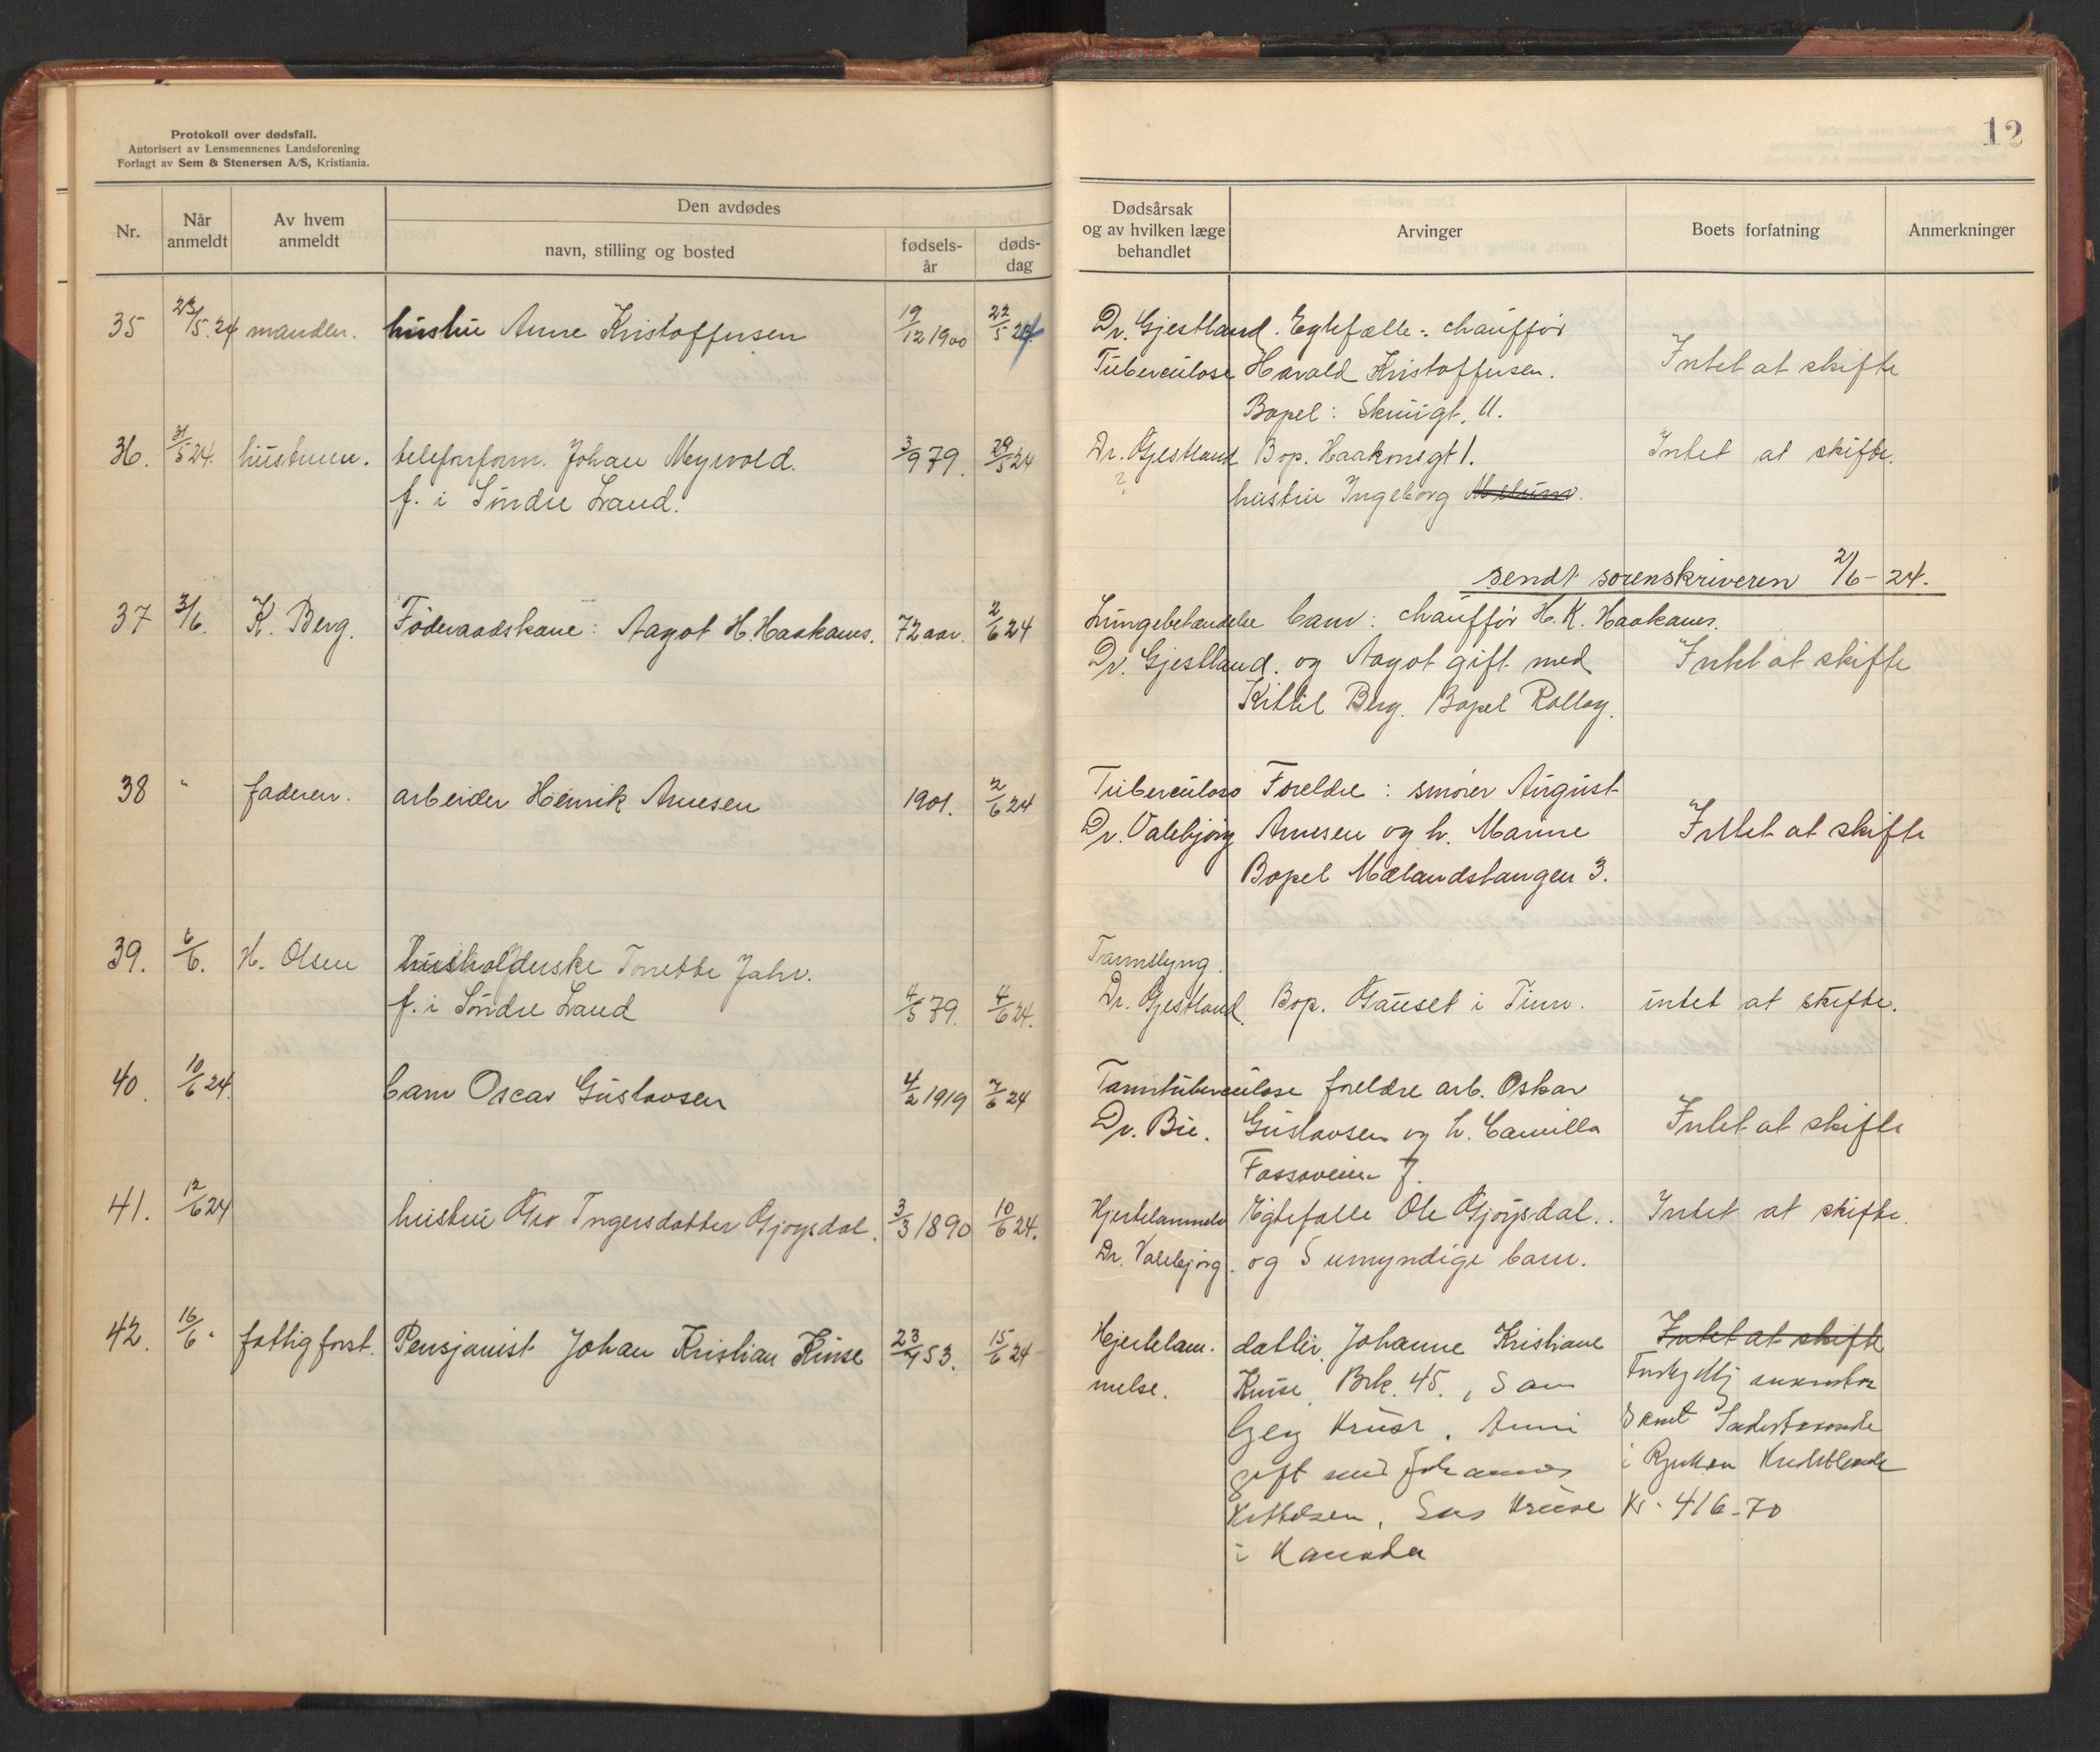 Protokoll over dødsfall.
Autorisert av Lensmennenes Landsforening
Forlagt av Sem & Stenersen A/S, Kristiania.
12
Nr.
Når anmeldt
Av hvem anmeldt
Den avdødes
navn, stilling og bosted
fødsels-år
døds-dag
Dødsårsak og av hvilken læge behandlet
Arvinger
Boets forfatning
Anmerkninger
35 23/5.24 manden. hustru Anne Kristoffersen 19/12 1900 22/5 24 Dr. Gjestland. Egtefælle: chauffør
Tuberculose Harald Kristoffersen. Intet at skifte
Bopel: Skriugt. 11.
36. 31/5 24. hustruen. telefonform. Johan Myrvold. 3/9 79. 29/5 24 Dr. Gjestland Bop. Haakonsgt 1. Intet at skifte.
f. i Søndre Land. ? hustru Ingeborg
sendt sorenskriveren 2/6-24.
37 3/6. K. Berg. Føderaadskone: Aagot H. Haakanes. 72 aar. 2/6 24 Lungebetændelse barn: chauffør H. K. Haakanes.
Dr. Gjestland. og Aagot gift med Intet at skifte
Kittil Berg. Bopel Rollag.
38 " faderen. arbeider Henrik Arnesen 1901. 2/6 24 Tuberculose Foreldre: smører August
Dr. Valebjørg Arnesen og h. Marine Intet at skifte
Bopel Mælandstangen 3.
39. 6/6. H. Olsen husholderske Tonette Jahr. Tarmslyng.
f. i Søndre Land 4/5 79. 4/6 24. Dr. Gjestland. Bop. Gauset i Tinn. intet at skifte.
40. 10/6 24. barn Oscar Gustavsen 4/2 1919 7/6 24 Tarmtuberculose foreldre arb. Oskar
Dr. Bie. Gustavsen og h. Camilla Intet at skifte
Fossoveien 7.
41. 12/6 24 hustru Gro Ingersdatter Gjøysdal. 3/3 1890 10/6 24. Hjertelammelse Egtefælle Ole Gjøysdal. Intet at skifte.
Dr. Valebjørg. og 5 umyndige barn.
42. 16/6 " fattigforst. Pensjonist Johan Kristian Kruse 23/4 53. 15/6 24 Hjertelam- datter Johanne Kristiane Intet at skifte
melse. Kruse, Brk. 45.,
Kruse, Anni
gift med Johannes i Rjukan
Kittilsen, Kruse Kr. 416-70
i Kanada